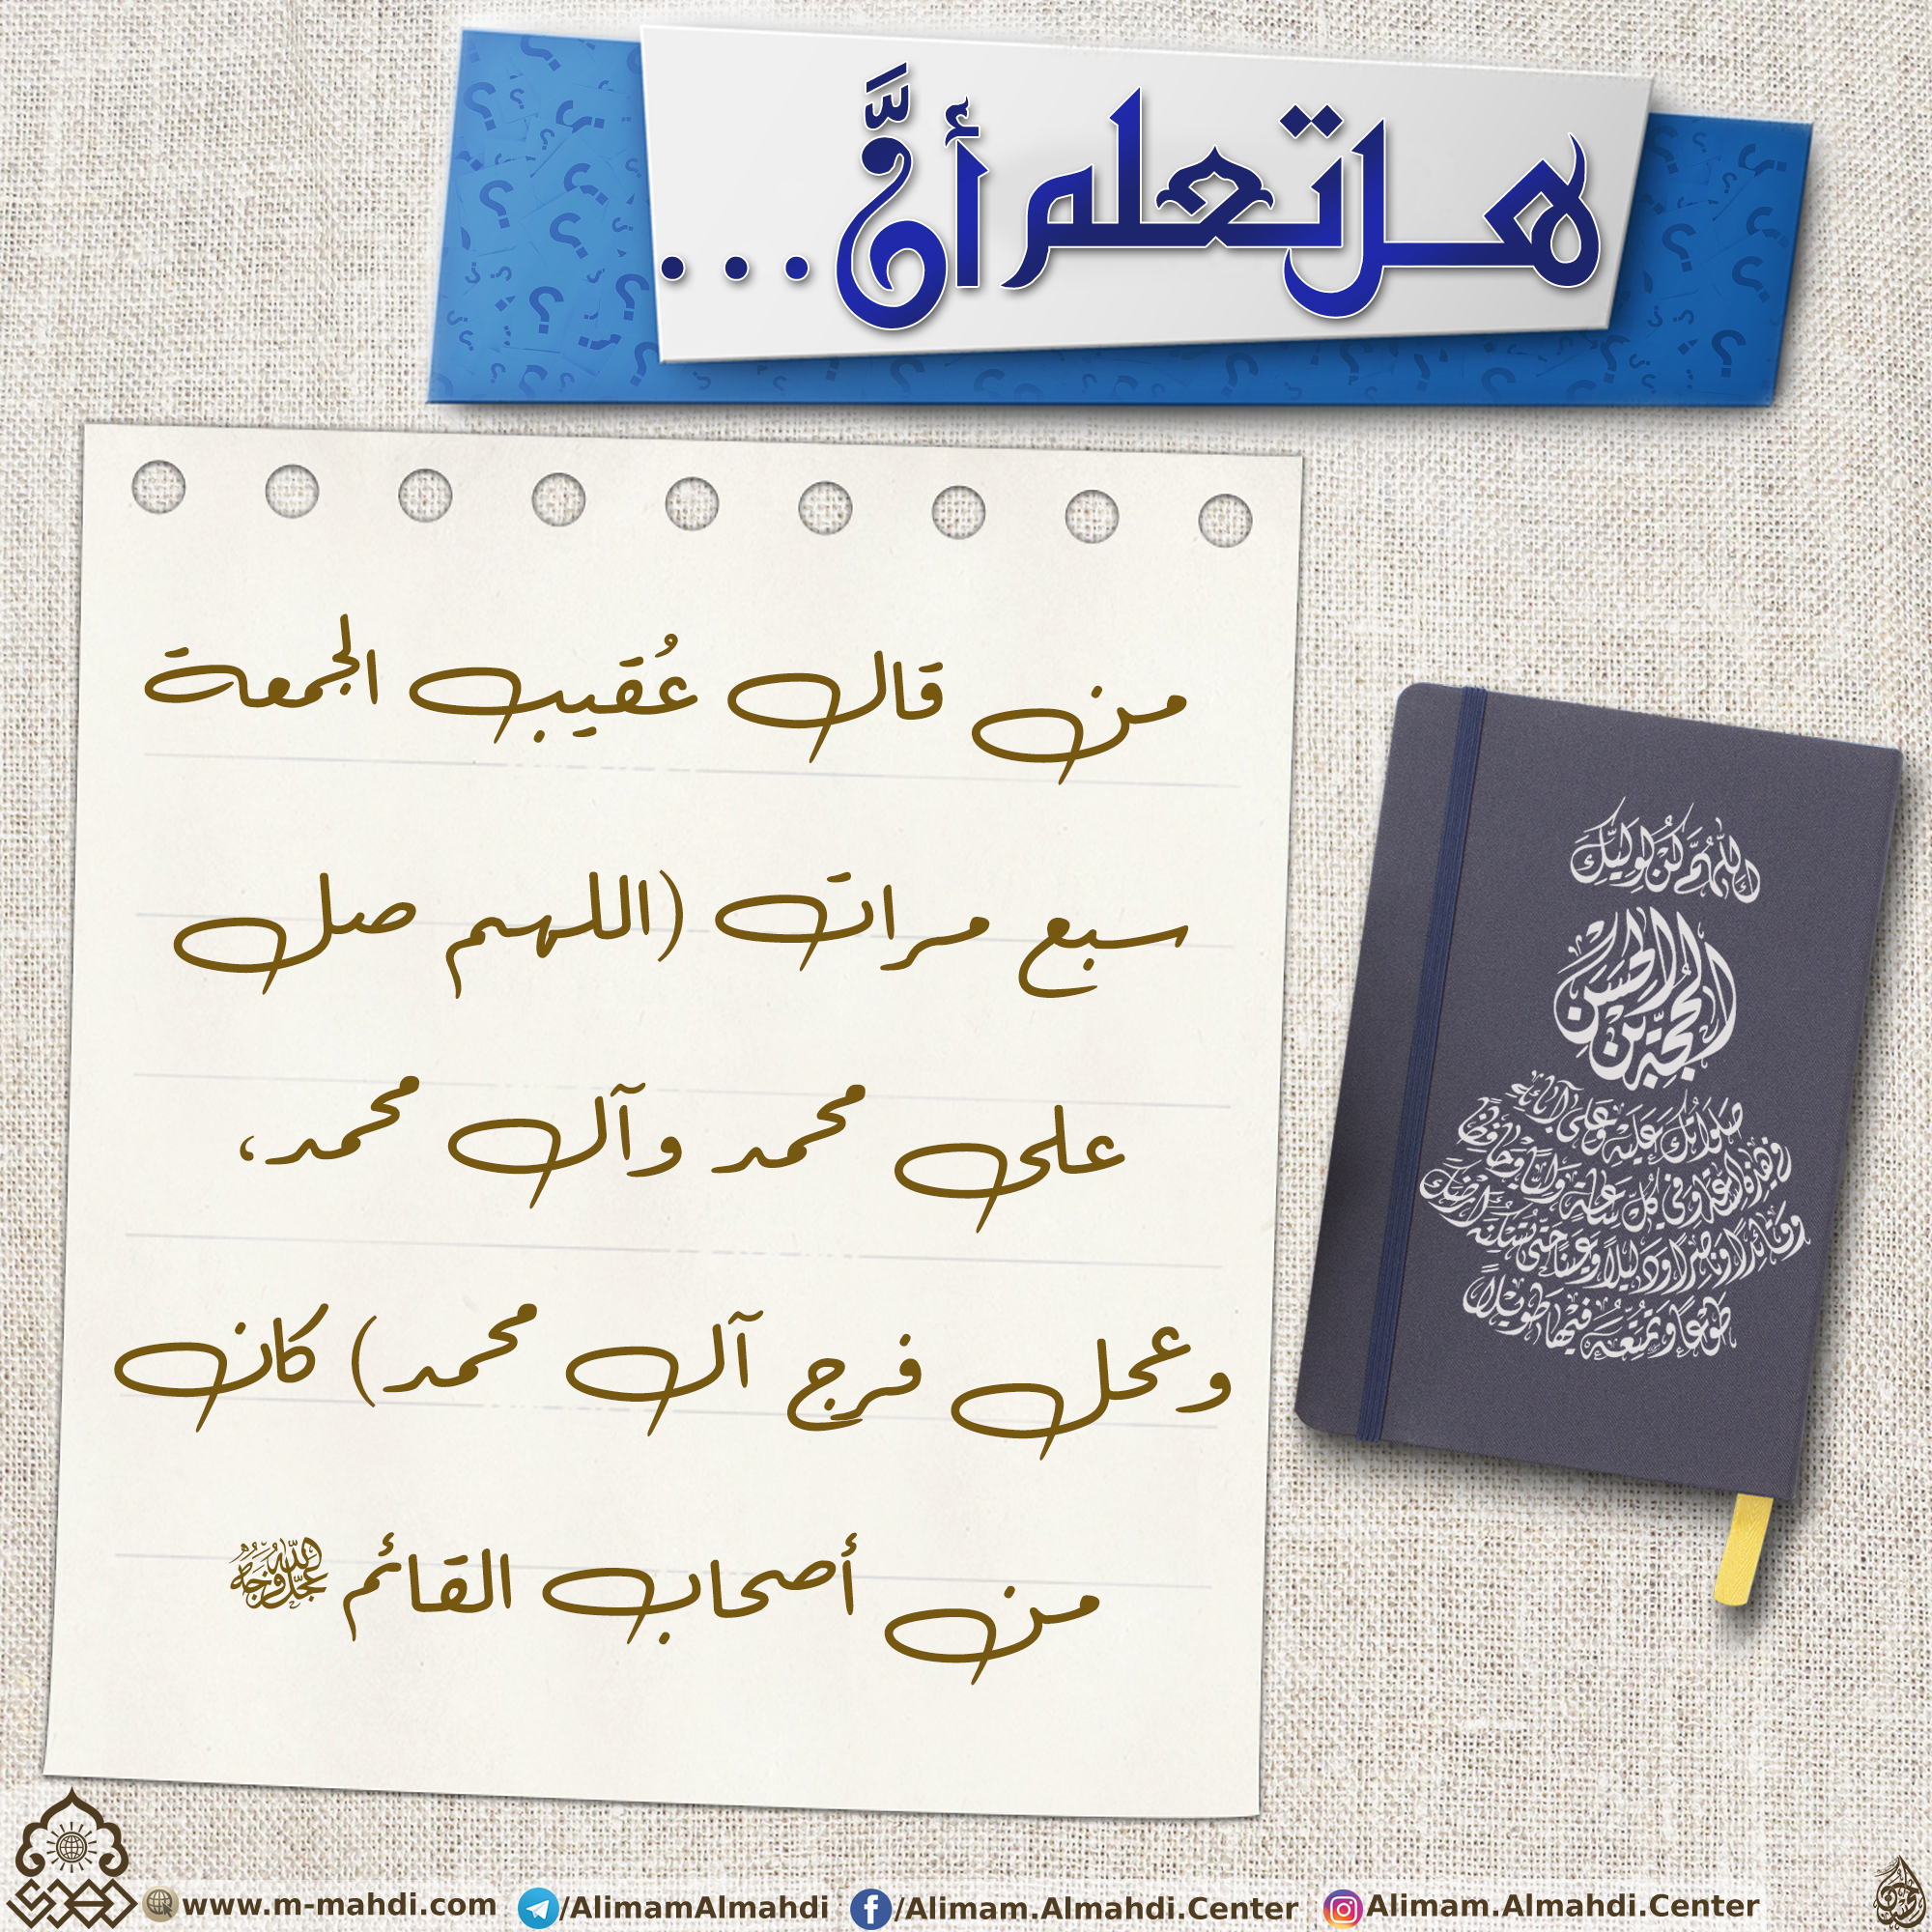 هل تعلم أنَّ...
من قال عُقيب الجمعة
سبع مرات (اللهم صل
على محمد وآل محمد،
وعجل فرج آل محمد) كان
من أصحاب القائم عجل الله فرجه
اللهم كن لوليك
الحجة بن الحسن
صلواتك عليه وعلى آبائه
في هذه الساعة وفي كل ساعة وليا وحافظا
وقائدا وناصرا ودليلا وعينا حتى تسكنه أرضك
طوعا وتمتعه فيها طويلا
www.m-mahdi.com /AlimamAlmahdi /Alimam.Almahdi.Center Alimam.Almahdi.Center